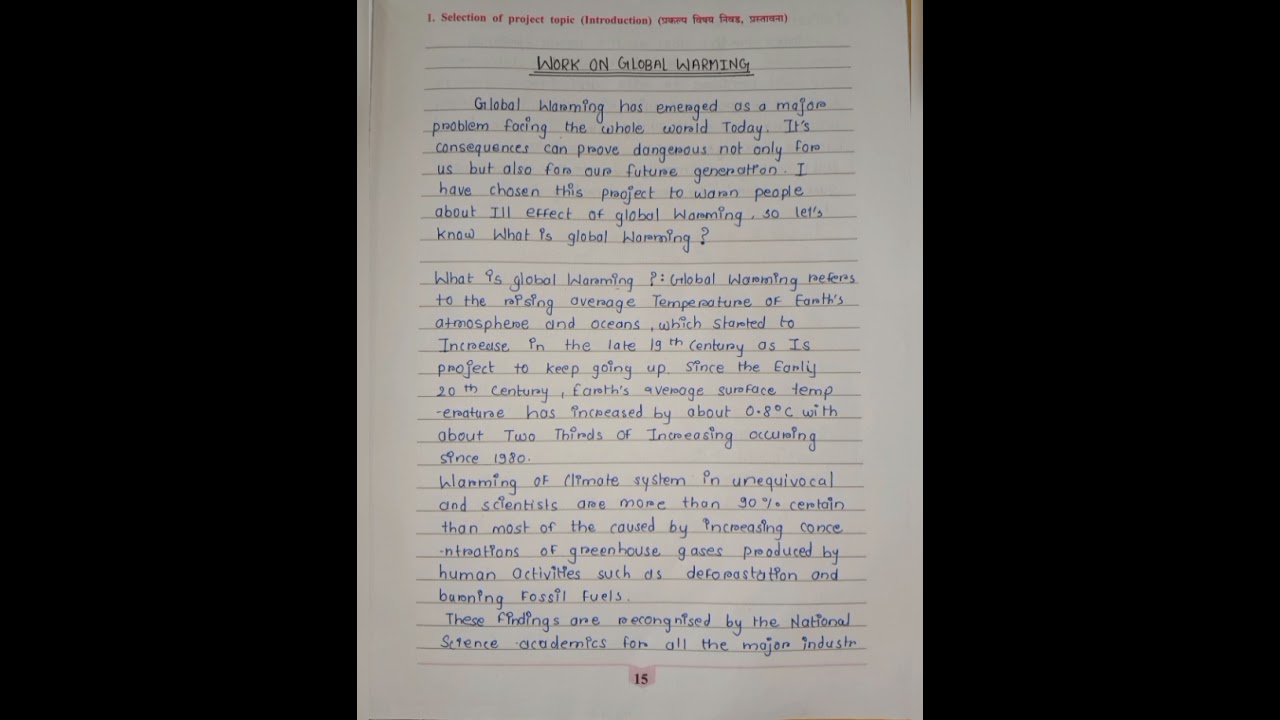 1. Selection of project topic (Introduction) (प्रकल्प विषय निवड, प्रस्तावना)
WORK ON GLOBAL WARMING
Global Warming has emerged as a major
problem facing the whole world Today. It's
consequences can prove dangerous not only for
us but also for our future generation. I
have chosen this project to warn people
about Ill effect of global Warming. so let's
know What is global Warming?
What is global Warming ?: Global Warming refers
to the rising average Temperature of Earth's
atmosphere and oceans, which started to
Increase in the late 19th Century as Is
project to keep going up. Since the Early
20th Century, Earth's average surface temp
-erature has increased by about 0.8°C with
about Two Thirds of Increasing occuring
since 1980.
Warming of Climate system in unequivocal
and scientists are more than 90% certain
than most of the caused by increasing conce
-ntrations of greenhouse gases produced by
human activities such as deforastation and
burning Fossil Fuels.
These findings are recongnised by the National
Science academics for all the major industr
15